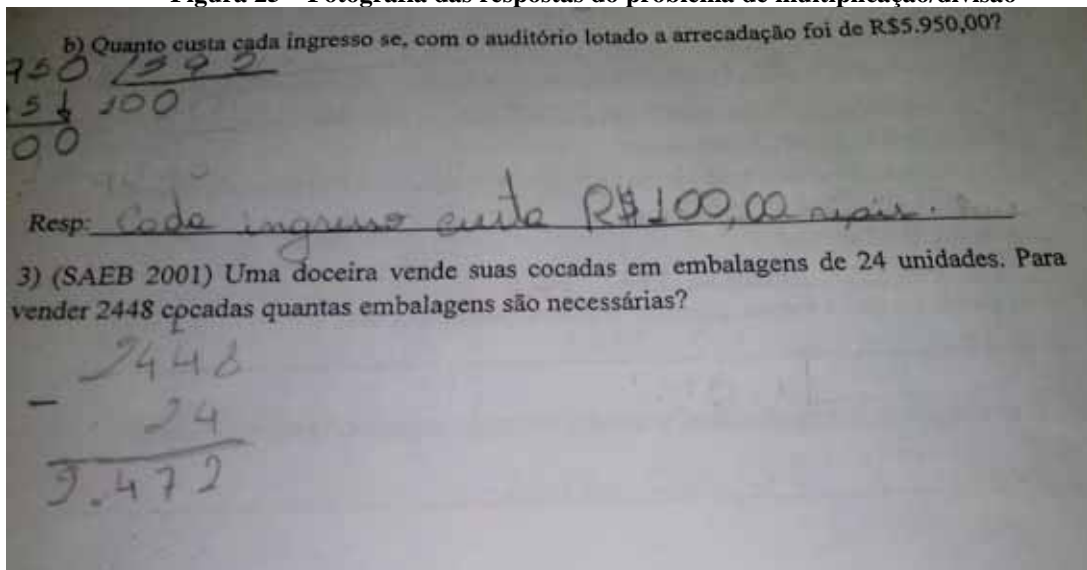 Figura 25 – Fotografia das respostas do problema de multiplicação/divisão
b) Quanto custa cada ingresso se, com o auditório lotado a arrecadação foi de R$5.950,00?
950 595
5 100
00
Resp: Cada ingresso custa R$100,00 reais.
3) (SAEB 2001) Uma doceira vende suas cocadas em embalagens de 24 unidades. Para
vender 2448 cocadas quantas embalagens são necessárias?
1
2448
- 24
2.472